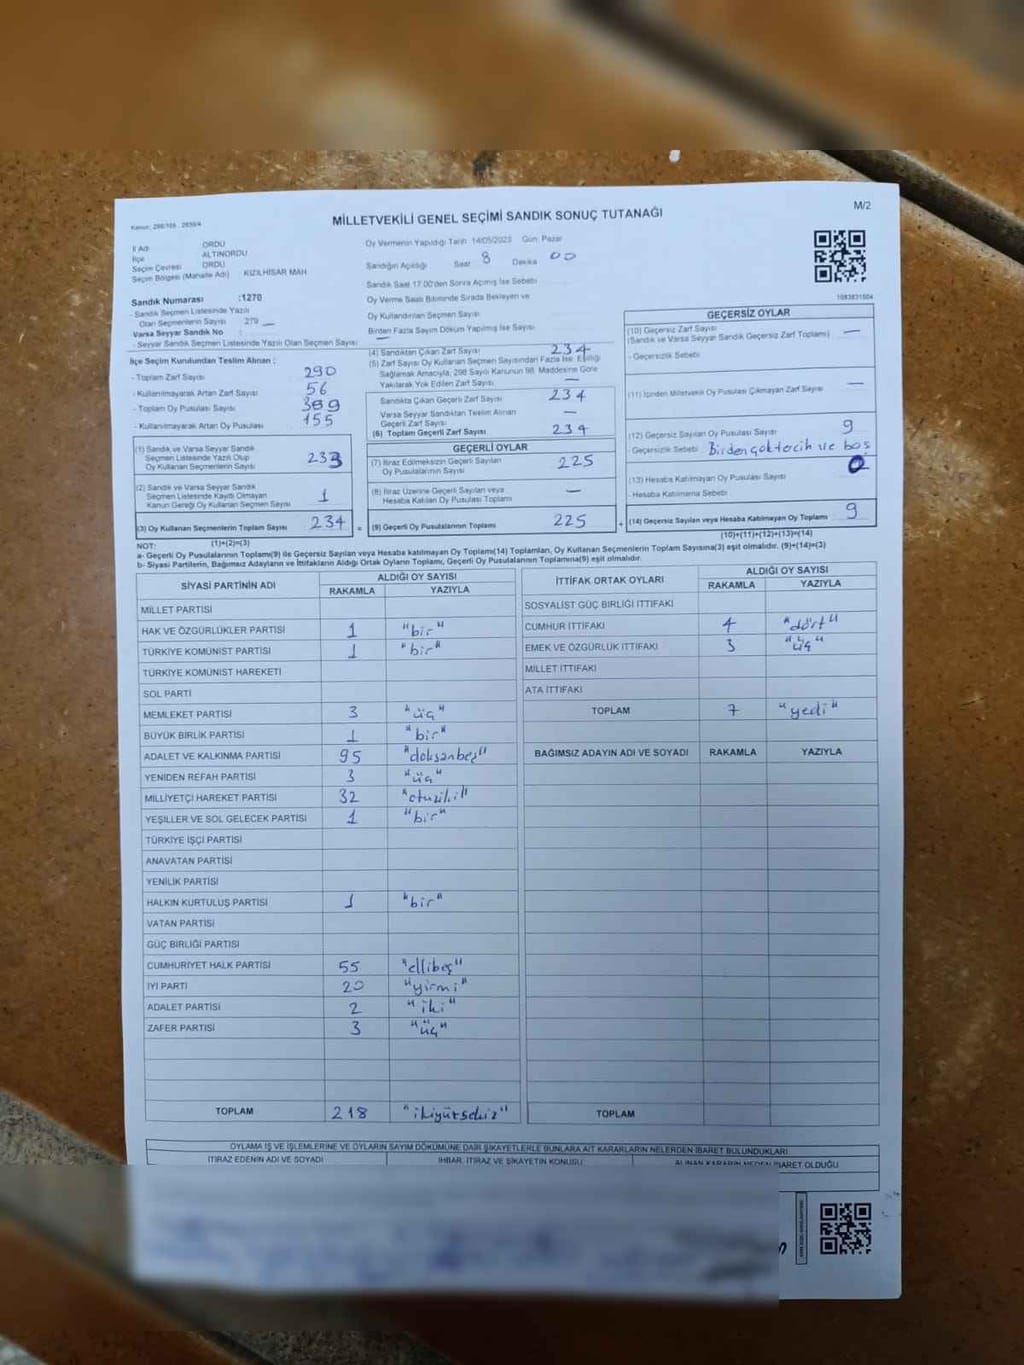 MİLLETVEKİLİ GENEL SEÇİMİ SANDIK SONUÇ TUTANAĞI
M/2
İl Adı ORDU
İlçe ALTINORDU
Seçim Çevresi ORDU
Seçim Bölgesi (Mahalle Adı) KIZILHİSAR MAH
Sandık Numarası :1270
- Sandık Seçmen Listesinde Yazılı
Olan Seçmenlerin Sayısı 279
Varsa Seyyar Sandık No :
- Seyyar Sandık Seçmen Listesinde Yazılı Olan Seçmen Sayısı :
Oy Vermenin Yapıldığı Tarih 14/05/2023 Gün: Pazar
Sandığın Açıldığı Saat 8 Dakika 00
Sandık Saat 17.00'den Sonra Açılmış İse Sebebi
Oy Verme Saati Bitiminde Sırada Bekleyen ve
Oy Kullandırılan Seçmen Sayısı
Birden Fazla Sayım Döküm Yapılmış İse Sayısı —
1083831504
İlçe Seçim Kurulundan Teslim Alınan ;
- Toplam Zarf Sayısı 290
- Kullanılmayarak Artan Zarf Sayısı 56
- Toplam Oy Pusulası Sayısı 389
- Kullanılmayarak Artan Oy Pusulası 155
(1) Sandık ve Varsa Seyyar Sandık
Seçmen Listesinde Yazılı Olup
Oy Kullanan Seçmenlerin Sayısı 233
(2) Sandık ve Varsa Seyyar Sandık
Seçmen Listesinde Kayıtlı Olmayan
Kanun Gereği Oy Kullanan Seçmen Sayısı 1
(3) Oy Kullanan Seçmenlerin Toplam Sayısı 234
(4) Sandıktan Çıkan Zarf Sayısı 234
(5) Zarf Sayısı Oy Kullanan Seçmen Sayısından Fazla İse, Eşitliği
Sağlamak Amacıyla, 298 Sayılı Kanunun 98. Maddesine Göre
Yakılarak Yok Edilen Zarf Sayısı —
Sandıkta Çıkan Geçerli Zarf Sayısı 234
Varsa Seyyar Sandıktan Teslim Alınan
Geçerli Zarf Sayısı —
(6) Toplam Geçerli Zarf Sayısı 234
GEÇERLİ OYLAR
(7) İtiraz Edilmeksizin Geçerli Sayılan
Oy Pusulalarının Sayısı 225
(8) İtiraz Üzerine Geçerli Sayılan veya
Hesaba Katılan Oy Pusulası Toplamı —
(9) Geçerli Oy Pusulalarının Toplamı 225
GEÇERSİZ OYLAR
(10) Geçersiz Zarf Sayısı —
(Sandık ve Varsa Seyyar Sandık Geçersiz Zarf Toplamı)
- Geçersizlik Sebebi
(11) İçinden Milletvekili Oy Pusulası Çıkmayan Zarf Sayısı —
(12) Geçersiz Sayılan Oy Pusulası Sayısı 9
- Geçersizlik Sebebi Birden çok tercih ve boş
(13) Hesaba Katılmayan Oy Pusulası Sayısı 0
- Hesaba Katılmama Sebebi
(14) Geçersiz Sayılan veya Hesaba Katılmayan Oy Toplamı 9
NOT: (1)+(2)=(3)
(10)+(11)+(12)+(13)=(14)
a- Geçerli Oy Pusulalarının Toplamı(9) ile Geçersiz Sayılan veya Hesaba katılmayan Oy Toplamı(14) Toplamları, Oy Kullanan Seçmenlerin Toplam Sayısına(3) eşit olmalıdır. (9)+(14)=(3)
b- Siyasi Partilerin, Bağımsız Adayların ve İttifakların Aldığı Ortak Oyların Toplamı, Geçerli Oy Pusulalarının Toplamına(9) eşit olmalıdır.
SİYASİ PARTİNİN ADI ALDIĞI OY SAYISI
RAKAMLA YAZIYLA
MİLLET PARTİSİ
HAK VE ÖZGÜRLÜKLER PARTİSİ 1 "bir"
TÜRKİYE KOMÜNİST PARTİSİ 1 "bir"
TÜRKİYE KOMÜNİST HAREKETİ
SOL PARTİ
MEMLEKET PARTİSİ 3 "üç"
BÜYÜK BİRLİK PARTİSİ 1 "bir"
ADALET VE KALKINMA PARTİSİ 95 "doksanbeş"
YENİDEN REFAH PARTİSİ 3 "üç"
MİLLİYETÇİ HAREKET PARTİSİ 32 "otuziki"
YEŞİLLER VE SOL GELECEK PARTİSİ 1 "bir"
TÜRKİYE İŞÇİ PARTİSİ
ANAVATAN PARTİSİ
YENİLİK PARTİSİ
HALKIN KURTULUŞ PARTİSİ 1 "bir"
VATAN PARTİSİ
GÜÇ BİRLİĞİ PARTİSİ
CUMHURİYET HALK PARTİSİ 55 "ellibeş"
İYİ PARTİ 20 "yirmi"
ADALET PARTİSİ 2 "iki"
ZAFER PARTİSİ 3 "üç"
TOPLAM 218 "ikiyüzsekiz"
İTTİFAK ORTAK OYLARI ALDIĞI OY SAYISI
RAKAMLA YAZIYLA
SOSYALİST GÜÇ BİRLİĞİ İTTİFAKI
CUMHUR İTTİFAKI 4 "dört"
EMEK VE ÖZGÜRLÜK İTTİFAKI 3 "üç"
MİLLET İTTİFAKI
ATA İTTİFAKI
TOPLAM 7 "yedi"
BAĞIMSIZ ADAYIN ADI VE SOYADI RAKAMLA YAZIYLA
TOPLAM
OYLAMA İŞ VE İŞLEMLERİNE VE OYLARIN SAYIM DÖKÜMÜNE DAİR ŞİKAYETLERLE BUNLARA AİT KARARLARIN NELERDEN İBARET BULUNDUKLARI
İTİRAZ EDENİN ADI VE SOYADI İHBAR, İTİRAZ VE ŞİKAYETİN KONUSU ALINAN KARARIN NEDEN İBARET OLDUĞU